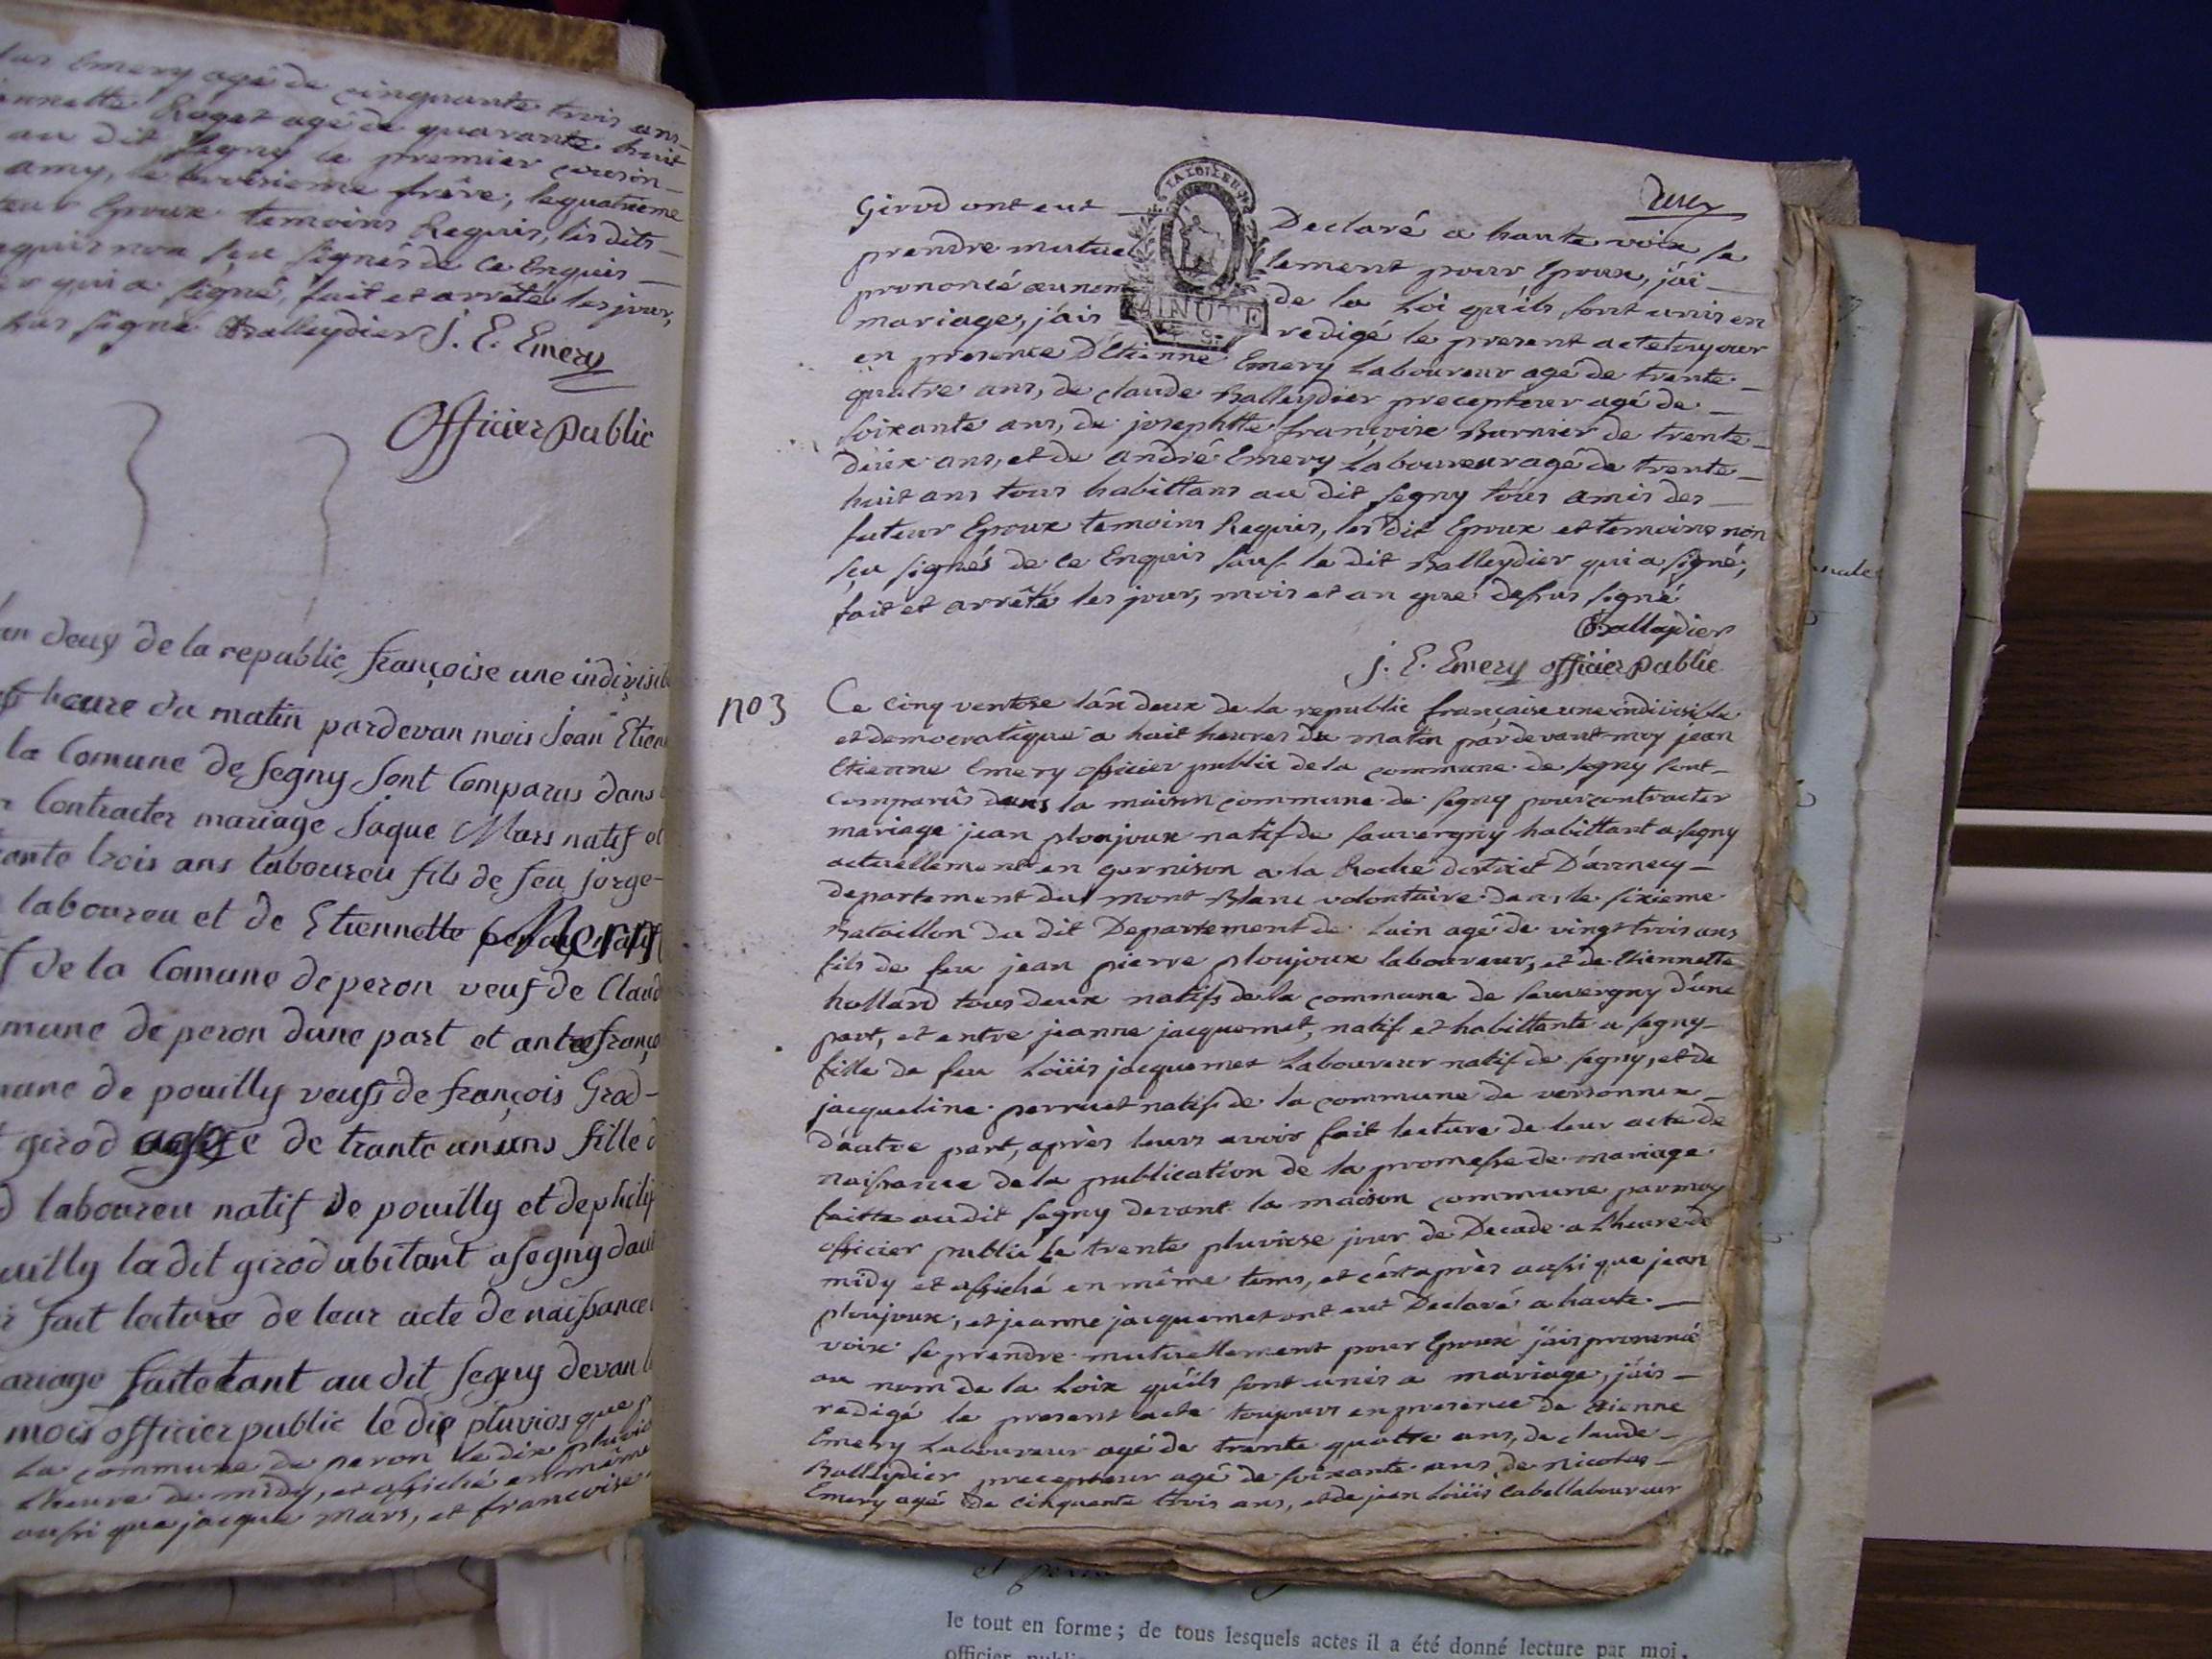 Emery agé de cinquante trois ans
Roget agé de quarante huit
au dit Segny le premier cousin
amy, le troisieme frère, le quatrieme
Epoux temoins Requis, les dits
requis non sçu signés de ce Enquis
qui a signé, fait et arrêté les jour,
signé Balleydier J. E. Emery
Officier public
deux de la republic françoise une indivisib
heure du matin pardevan mois Jean Etien
la Comune de Segny sont Comparus dans
Contracter mariage Jaque Mars natif et
trois ans laboureu fils de feu jorge
laboureu et de Etiennette
de la Comune de peron veuf de Claud
mune de peron dune part et antre franço
mune de pouilly veufs de françois Grod
girod de trante un ans fille d
laboureu natif De pouilly et de philip
uilly ladit girod abitant a Segny dau
fait lecture de leur acte de naissance
ariage faite tant au dit Segny devan l
mois officier public le dix pluvios que p
la commune de peron le dix pluvio
lheure de midy, et affiché en même
aussi que jacque mars, et francoise
LA LOI LE
MINUTE
Girod ont eut Declaré a haute voix se
prendre mutuellement pour Epoux, j'ai
prononcé au nom de la Loi quils sont unis en
mariage, j'ais redigé le present acte toujour
en presence D'Etienne Emery Laboureur agé de trente
quatre ans, de claude Balleydier precepteur agé de
soixante ans, de josephtte françoise Burnier de trente
deux ans, et de andré Emery Laboureur agé de trente
huit ans tous habittans au dit Segny tous amis des
futeur Epoux temoins Requis, les dit Epoux et temoins non
sçu signés de ce Enquis sauf le dit Balleydier qui a signé,
fait et arrêté les jour, mois et an que dessus signé
Balleydier
J. E. Emery officier public
no 3
Ce cinq ventose l'an deux de la republic française une indivisible
et democratique a huit heures du matin pardevant moy jean
Etienne Emery officier public de la commune de Segny sont
comparûs dans la maison commune de Segny pour contracter
mariage jean ploujoux natif de sauvergny habittant a Segny
actuellement en garnison a la Roche district D'annecy
departement du mont Blanc volontaire dans le sixieme
Bataillon du dit Departement de Lain agé de vingt trois ans
fils de feu jean pierre ploujoux laboureur, et de Etiennette
hullard tous deux natifs de la commune de sauvergny d'une
part, et entre jeanne jacquemet, natif et habittante a Segny
fille de feu Loüis jacquemet Laboureur natif de Segny, et de
jacqueline perruet natif de la commune de versonnex
d'autre part, après leurs avoir fait lecture de leur acte de
naissance de la publication de la promesse de mariage
faitte audit Segny devant la maison commune par moy
officier public le trente pluviose jour de Decade a L'heure de
midy et affiché en même tems, et c'est après aussi que jean
ploujoux, et jeanne jacquemet ont eut Declaré a haute
voix se prendre mutuellement pour Epoux j'ais prononcé
au nom de la Loix qu'ils sont unis a mariage, j'ais
redigé le present acte toujours en presence de Etienne
Emery Laboureur agé de trente quatre ans, de claude
Balleydier precepteur agé de soixante ans, de nicolas
Emery agé De cinquante trois ans, et de jean Loüis Cabal laboureur
le tout en forme ; de tous lesquels actes il a été donné lecture par moi,